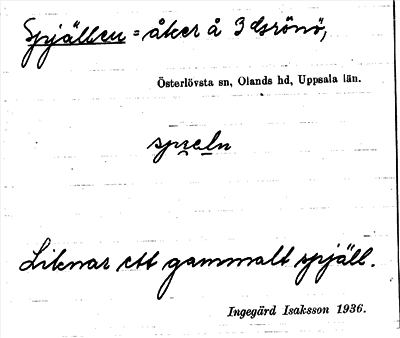 Spjällen = åker å 3 dsrönö,
Österlövsta sn, Olands hd, Uppsala län.
Liknar ett gammalt spjäll.
Ingegärd Isaksson 1936.